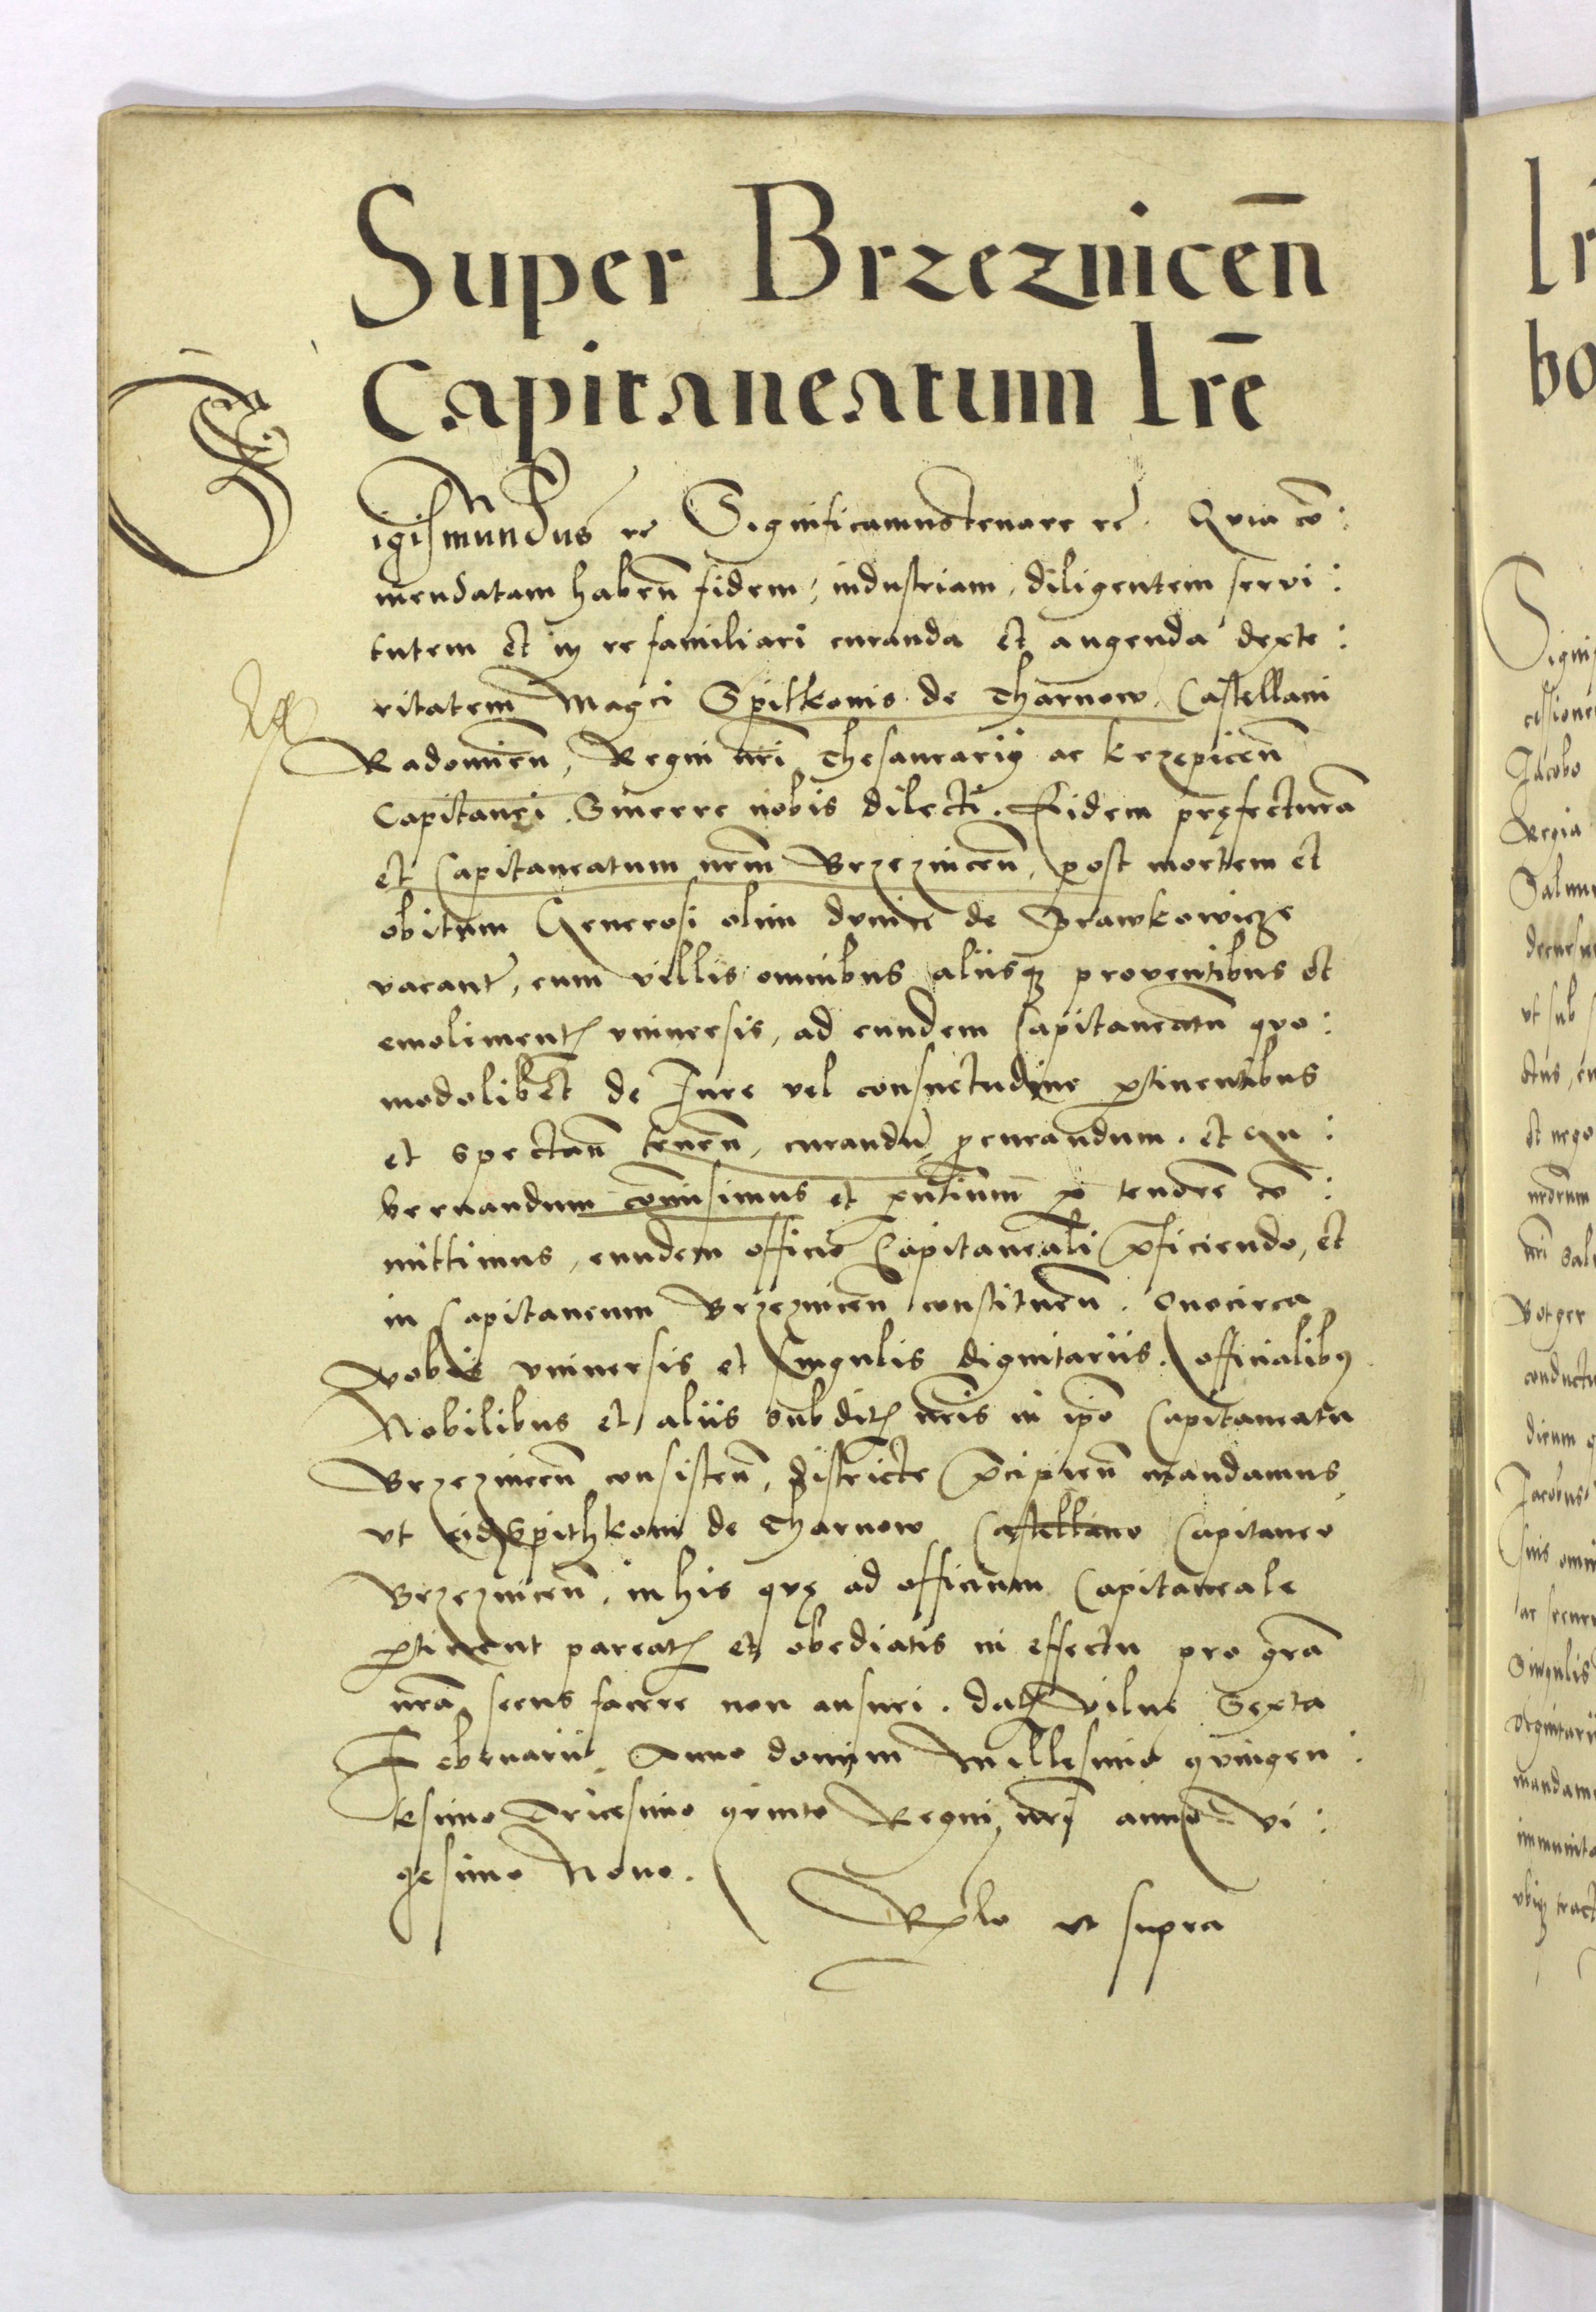 Super Brzeznicen̄
Capitaneatum Lrē
Sigismundus rc̄ Significamus tenore rc̄. Quia cō:
mendatam haben̄ fidem, industriam, diligentem servi:
tutem et in re familiari curanda et augenda dexte:
ritatem Magci Spitkonis de Tharnow Castellani
Radomien̄, Regni nri Thesaurarij ac krzepicen̄
Capitanei. Sincere nobis dilecti. Eidem pręfecturā
et Capitaneatum nrm̄ Brzeznicen̄, post mortem et
obitum Generosi olim dunin de Sprawkowicze
vacant̄, cum villis omnibus aliisq₃ proventibus et
emoliment̄ vniversis, ad eundem Capitaneatū quo:
modolibet de Iure vel consuetudine ꝑtinentibus
et spectan̄ tenen̄, curandū, ꝓcurandum. et Gu:
bernandum com̄isimus et pn̄tium̄ ꝑ tenorē cō:
mittimus, eundem officio Capitaneali p̄ficiendo, et
in Capitaneum Brzeznicen̄ constituen̄. Quocirca
vobis vniversis et Singulis dignitariis. officialibꝰ
Nobilibus et aliis subdit̄ nris̄ in ip̄o Capitaneatu
Brzeznicen̄ consisten̄, districte p̄cipien̄ mandamus
vt eid̄ Spithkoni de Tharnow Castellano Capitaneo
Brzeznicen̄, in his quę ad officium Capitaneale
ꝑtinent pareat̄ et obediatis in effectu pro grā
nrā secus facere non ausuri. dat̄ Vilnę Sexta
Februarii. Anno domini Millesimo quingen:
tesimo Tricesimo quinto Regni nri anno vi:
gesimo Nono.
Rǝlo vt supra